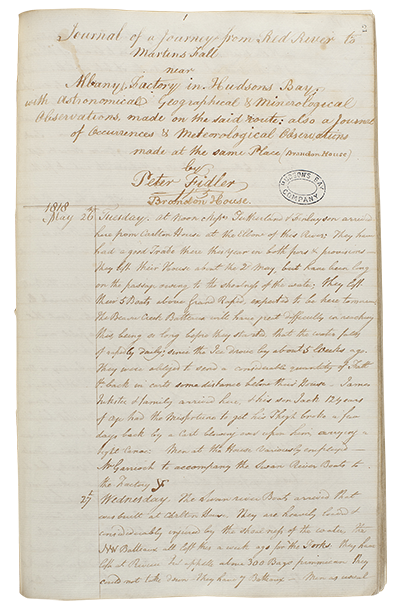 2
Journal of a Journey from Red River to
Martins Fall
near
Albany Factory in Hudsons Bay,
with Astronomical Geographical & Minerological
Observations, made on the said route: also a Journal
of Occurrences & Meteorological Observations
made at the same Place (Brandon House)
by
Peter Fidler
Brandon House.
HUDSON'S BAY COMPANY
1818
May 26 Tuesday. at Noon Messrs Sutherland & Finlayson arrived
here from Carlton House at the Elbow of this River; They have
had a good Trade there this year in both furs & provisions—
they left their House about the 2d May, but have been long
on the passage owing to the shoalness of the water; they left
their 5 Boats above Grand Rapid, expected to be here tomorrow
The Beaver Creek Batteaus will have great difficulty in reaching
this, being so long before they started, that the water falls
rapidly daily; since the Ice drove by about 5 Weeks ago.
They were obliged to send a considerable quantity of
back in carts some distance below their House— James
Inkster & family arrived here, & his son Jack 12 years
of age had the Misfortune to get his Thigh broke a few
days back by a Cart running over upon him carrying a
light Canoe. Men at the House variously employed—
Mr Garrioch to accompany the Swan River Boats to
the Factory
27 Wednesday. The Swan river Boats arrived that
was built at Carlton House. They are heavily loaded &
considerably injured by the shoalness of the water, the
NW Batteaus all left this a week ago for the Forks. they have
left at Riviere above 300 Bags pemmican they
could not take down they have 7 Batteaux— Men as usual